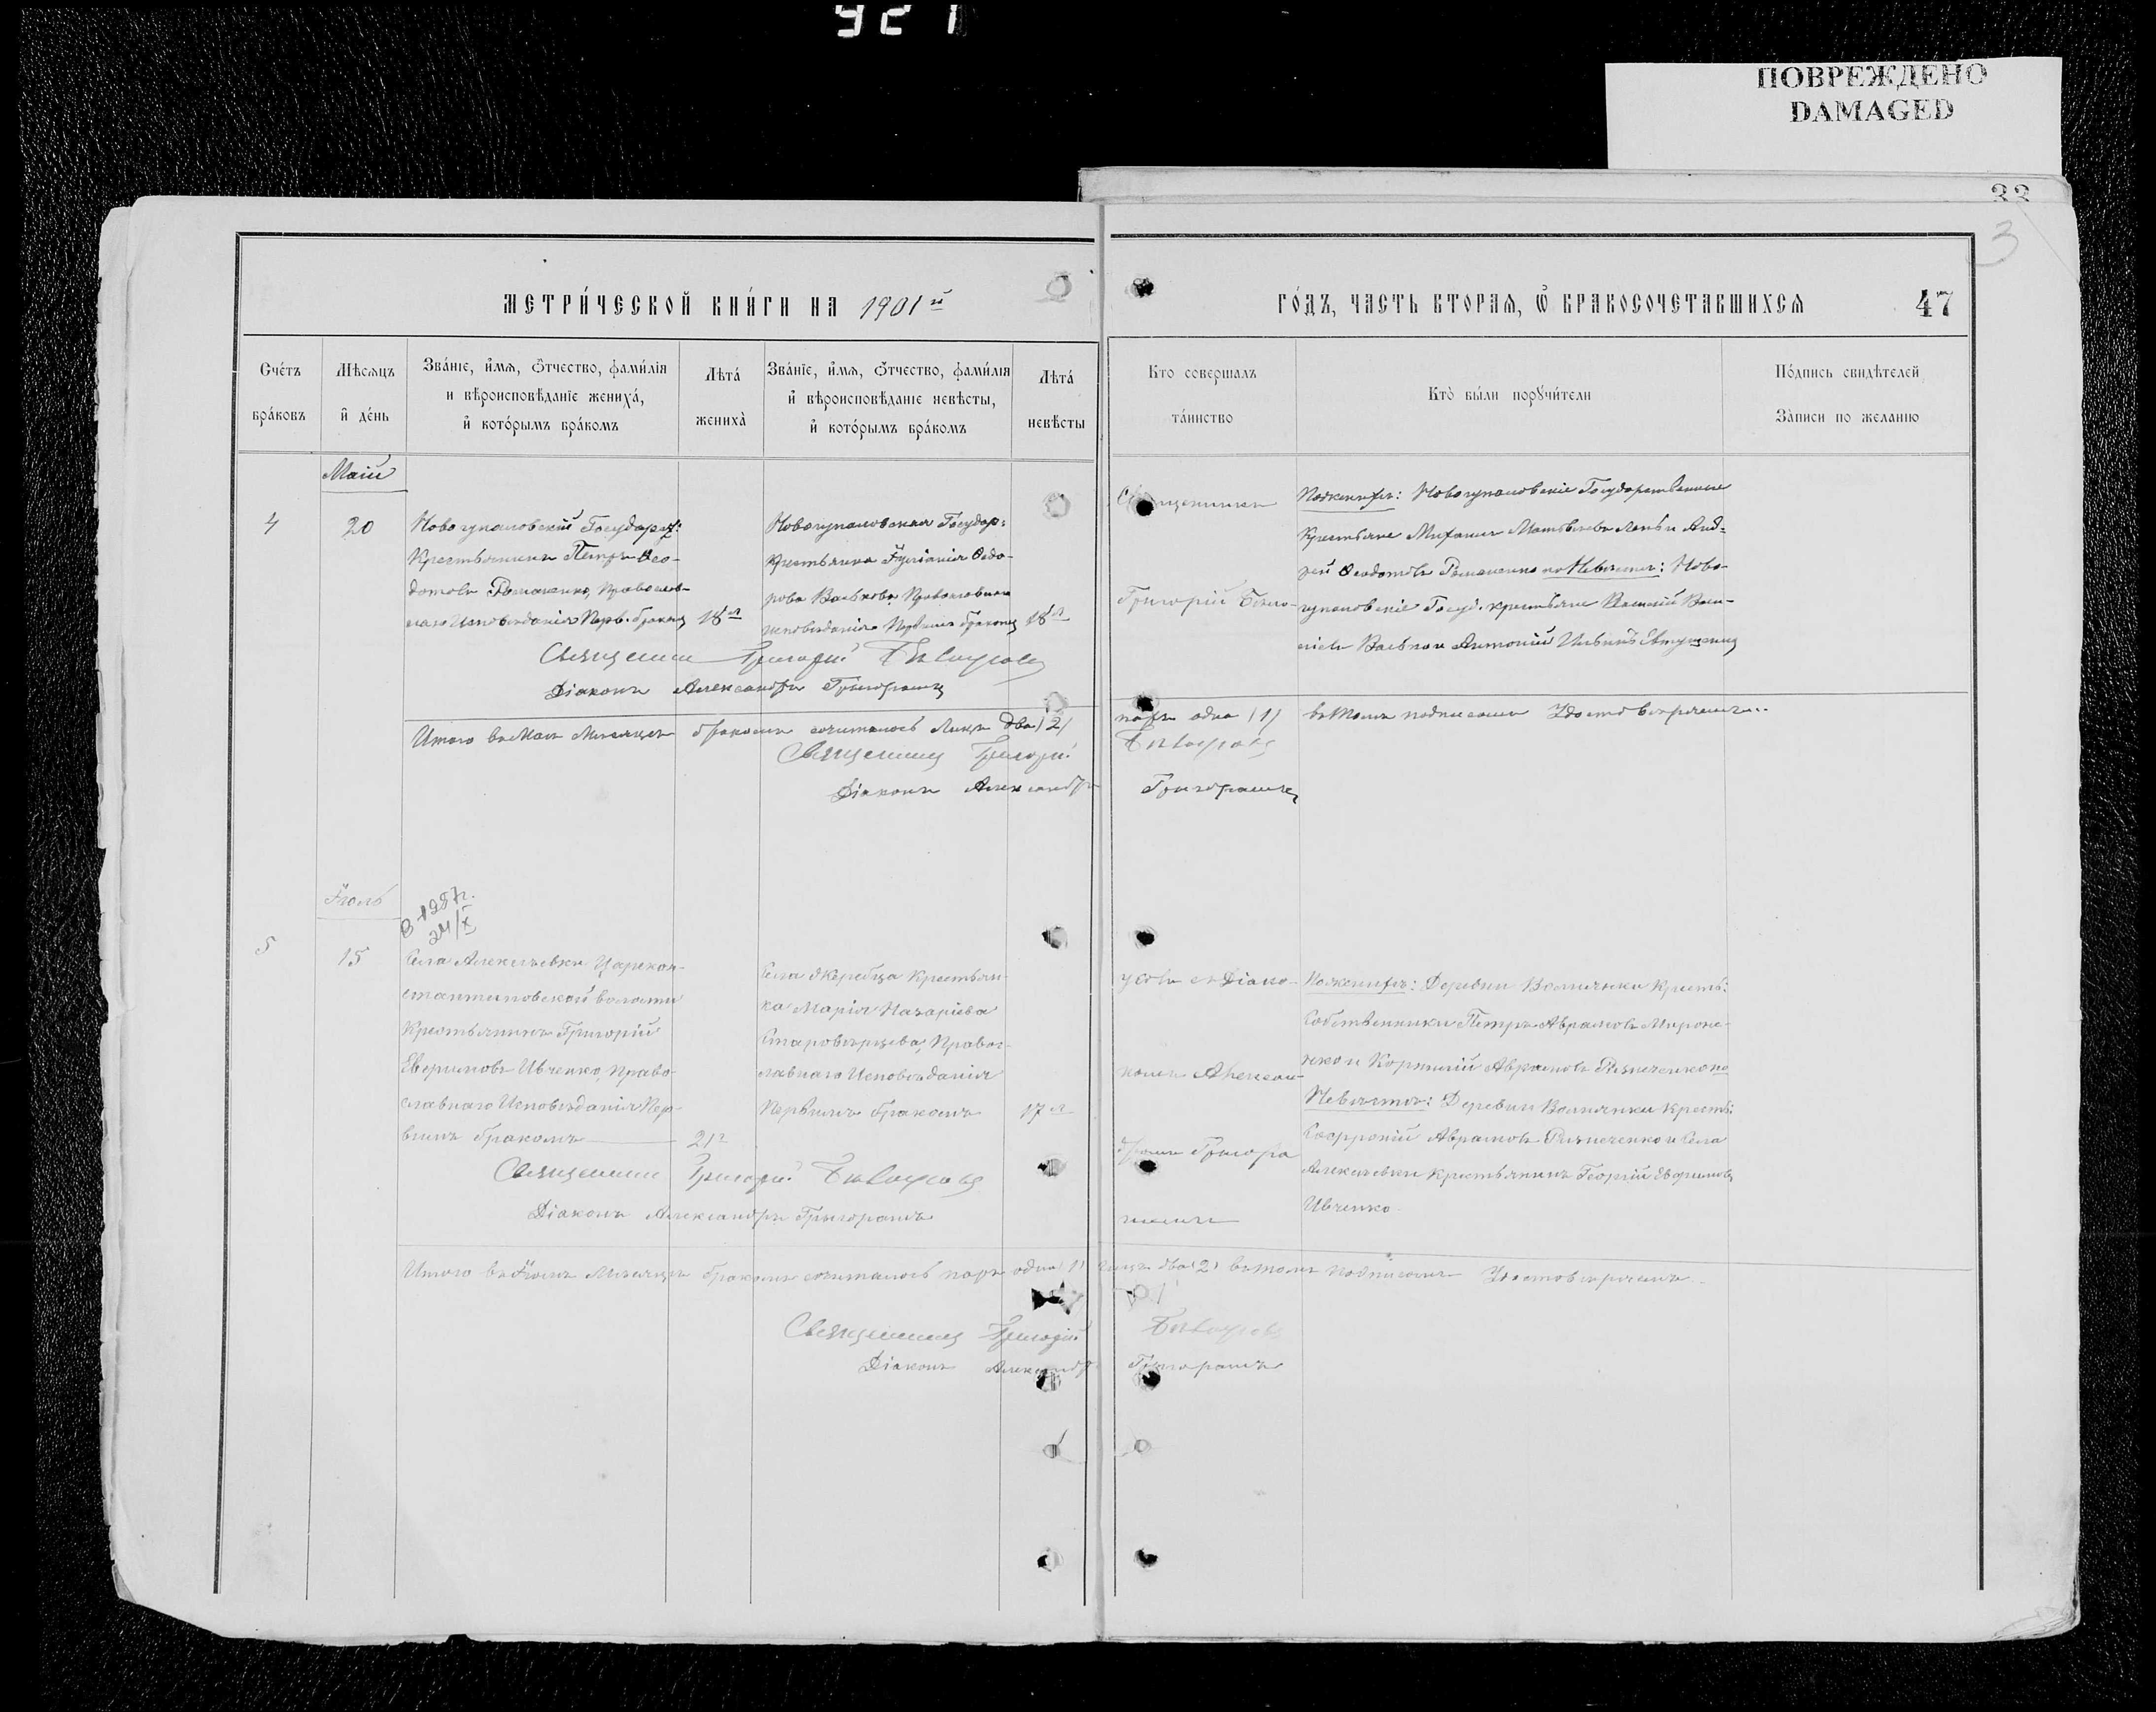 921
ПОВРЕЖДЕНО
DAMAGED
33
3
МЕТРИ́ЧЕСКОЙ КНИ́ГИ НА 1901й
ГО́ДЪ, ЧАСТЬ ВТОРАЯ, Ѿ БРАКОСОЧЕТАВШИХСЯ
47
Сче́тъ бра́ковъ
Мѣсяцъ и де́нь
Зва́нїе, и҆́мя, ѻ҆́тчество, фами́лїя
и вѣроисповѣ́данїе жениха̀,
и҆ кото́рымъ бра́комъ
Лѣта̀ жениха̀
Зва́нїе, и҆́мя, ѻ҆́тчество, фами́лїя
и҆ вѣроисповѣ́данїе невѣ́сты,
и҆ кото́рымъ бра́комъ
Лѣта̀ невѣ́сты
Кто совершалъ та́инство
Кто̀ бы́ли порꙋчи́тели
По́дпись свидѣ́телей
За́писи по желанію
Май
4
20
Новогупаловскій Государ:
Крестьянинъ Петръ Ѳео-
дотовъ Романенко, Православ-
наго Исповѣданія Перв. бракомъ
18 л
Новогупаловская Государ:
Крестьянка Іуліанія Ѳедо-
рова Волькова Православнаго
исповѣданія Первымъ бракомъ
18 л
Священникъ
Григорій
Поженихѣ: Новогупаловскіе Государственные
Крестьяне Матвѣевъ и Анд-
рей Ѳеодотовъ Романенко по Невѣстѣ: Ново-
гупаловскіе Госуд. крестьяне Васи-
Антоній Ильинъ
Священникъ Григорій
Діаконъ Александръ Григорашъ
Итого въ Маѣ Мѣсяцѣ бракомъ сочеталось Лицъ два (2) паръ одна (1) въ томъ подписомъ Удостовѣряемъ..
Священникъ Григорій
Діаконъ Александръ Григорашъ
Іюль
В 1957г.
24/X
5
15
Села Алексѣевки Царекон-
стантиновской волости
Крестьянинъ Григорій
Евфимовъ Ивченко, Право-
славнаго Исповѣданія Пер-
вымъ бракомъ
21 г
Села Жеребца Крестьян-
ка Марія Назаріева
Старовѣрцева, Правос-
лавнаго Исповѣданія
Первымъ бракомъ
17 л
съ Діако-
номъ Алексан-
дромъ Григора
шемъ
Поженихѣ: Деревни Волнянки Кресть:
Собственники Петръ Авраамовъ Мироне-
нко и Корнилій Авраамовъ Ризниченко по
Невѣстѣ: Деревни Волнянки Кресть:
Софроній Авраамовъ Ризниченко и Села
Алексѣевки Крестьянинъ Георгій Евфимовъ
Ивченко
Священникъ Григорій
Діаконъ Александръ Григорашъ
Итого въ Іюлѣ Мѣсяцѣ бракомъ сочеталось паръ одна (1) лицъ два (2) въ томъ подписомъ Удостовѣряемъ
Священникъ Григорій
Діаконъ Александръ Григорашъ